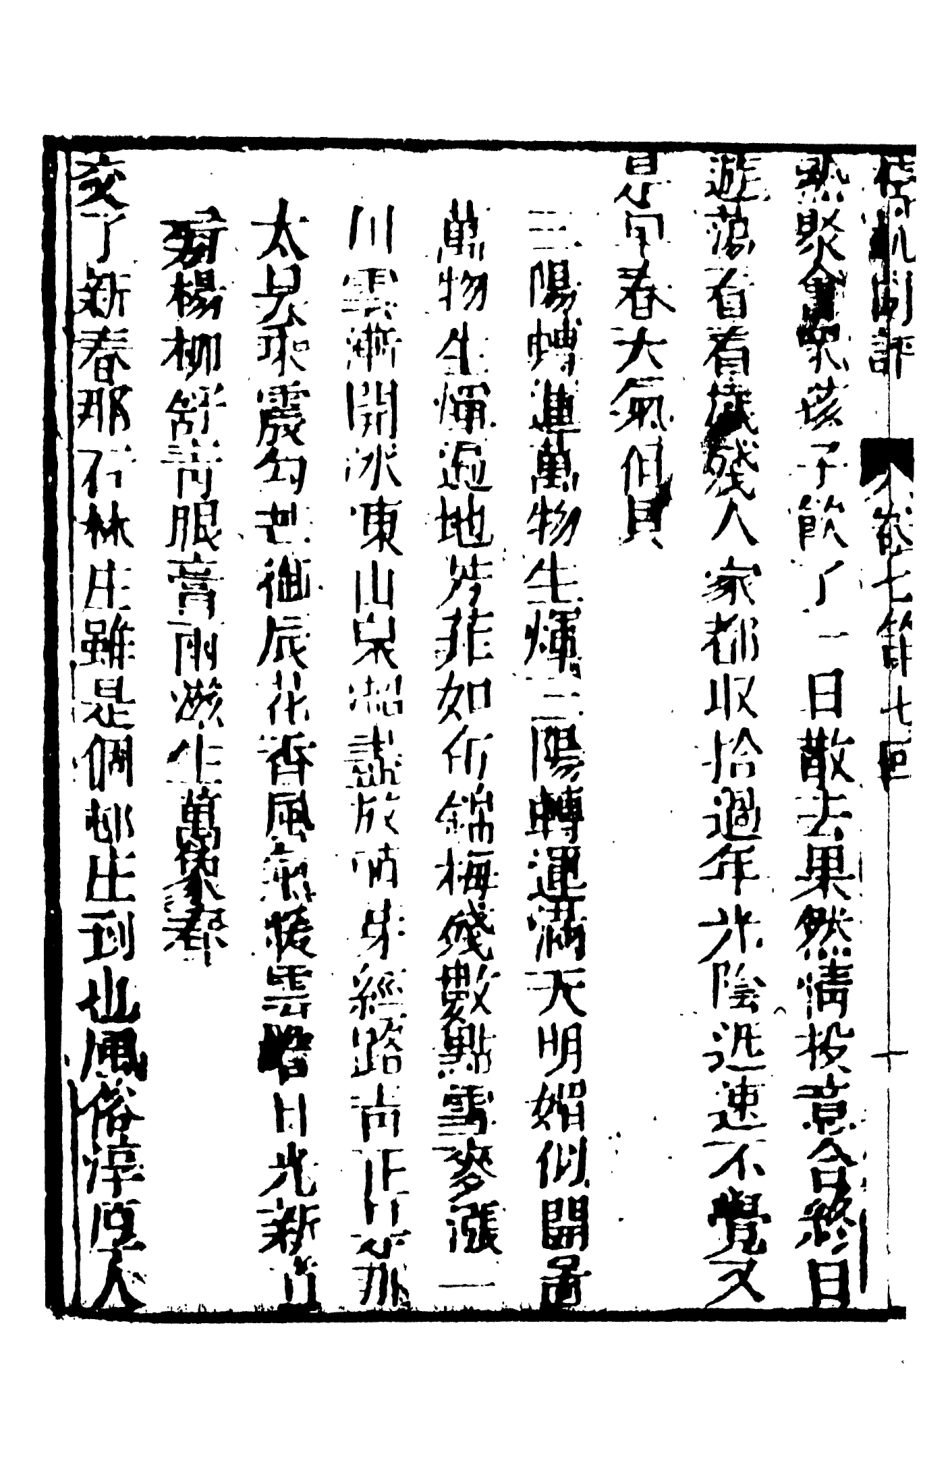 檮杌閑評 卷七第七回 十
然聚會衆孩子飲了一日散去果然情投意合終日
遊蕩看看歲殘人家都收拾過年光陰迅速不覺又
是早春天氣但見
三陽轉運萬物生輝三陽轉運滿天明媚似開圖
萬物生輝遍地芳菲如布錦梅殘數點雪麥漲一
川雲漸開冰凍山泉溜盡放萌芽經路青正是那
太昊乘震勾芒御辰花香風氣暖雲曙日光新道
旁楊柳舒青眼膏雨滋生萬象春
交了新春那石林庄雖是個村庄到也風俗淳厚人